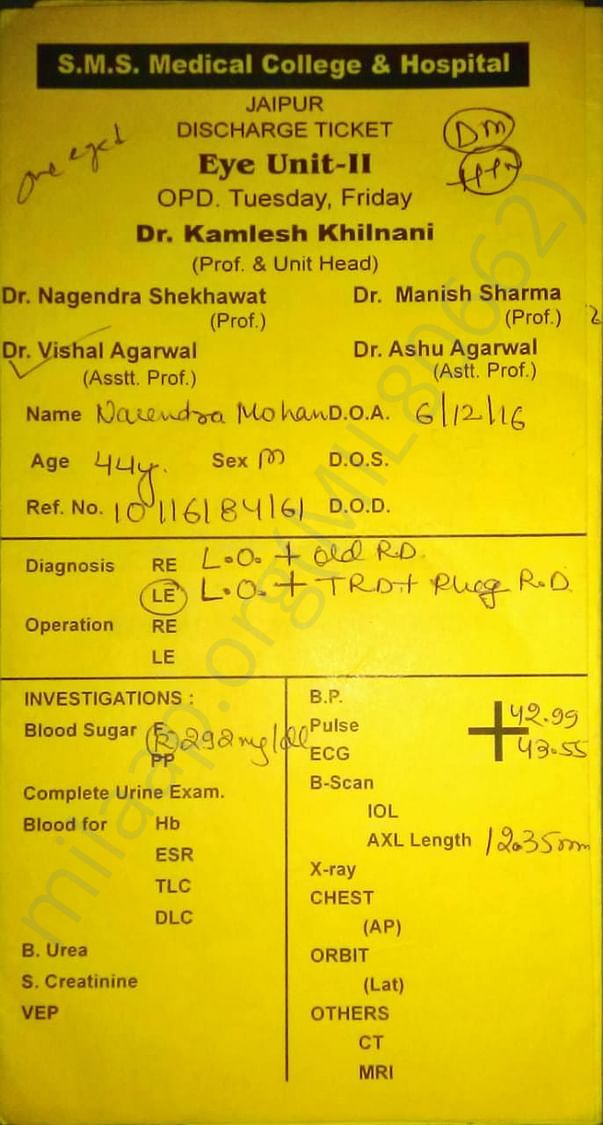 S.M.S. Medical College & Hospital
JAIPUR
DISCHARGE TICKET
one eyed
DM
HTN
Eye Unit-II
OPD. Tuesday, Friday
Dr. Kamlesh Khilnani
(Prof. & Unit Head)
Dr. Nagendra Shekhawat Dr. Manish Sharma
(Prof.) (Prof.)
Dr. Vishal Agarwal Dr. Ashu Agarwal
(Asstt. Prof.) (Astt. Prof.)
Name Narendra Mohan D.O.A. 6/12/16
Age 44y. Sex M D.O.S.
Ref. No. 10116184161 D.O.D.
Diagnosis RE L.O. + old R.D.
LE L.O. + TRD + Rheg R.D.
Operation RE
LE
INVESTIGATIONS :
Blood Sugar F
R 292 mg/dl
PP
Complete Urine Exam.
Blood for Hb
ESR
TLC
DLC
B. Urea
S. Creatinine
VEP
B.P.
Pulse
42.99
43.55
ECG
B-Scan
IOL
AXL Length
X-ray
CHEST
(AP)
ORBIT
(Lat)
OTHERS
CT
MRI
milaap.org(MIL80662)